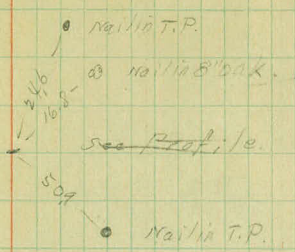 Nail in T.P.
Nail in 8" Oak.
24.6
16.8
See Profile.
50.9
Nail in T.P.